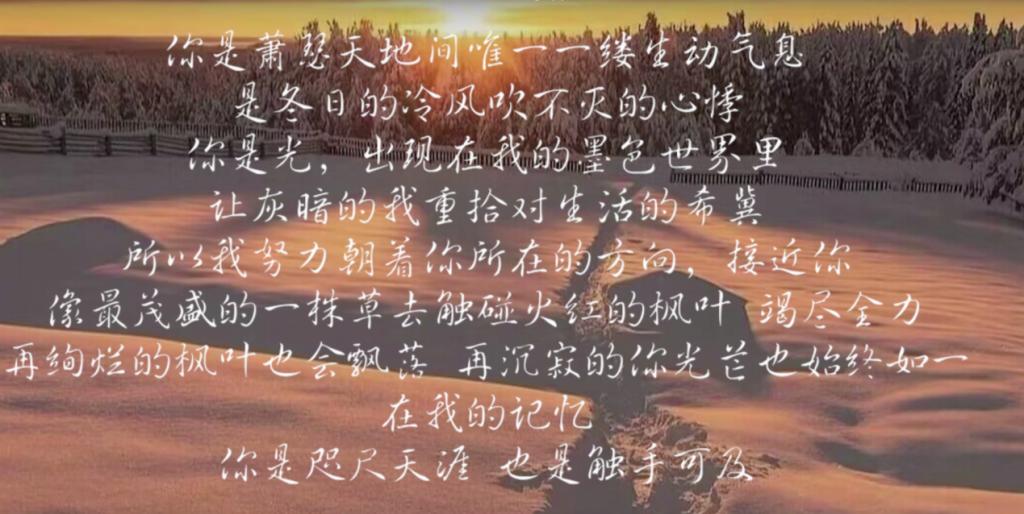 你是萧瑟天地间唯一一缕生动气息
是冬日的冷风吹不灭的心悸
你是光，出现在我的墨色世界里
让灰暗的我重拾对生活的希冀
所以我努力朝着你所在的方向，接近你
像最茂盛的一株草去触碰火红的枫叶 竭尽全力
再绚烂的枫叶也会飘落 再沉寂的你光芒也始终如一
在我的记忆
你是咫尺天涯 也是触手可及